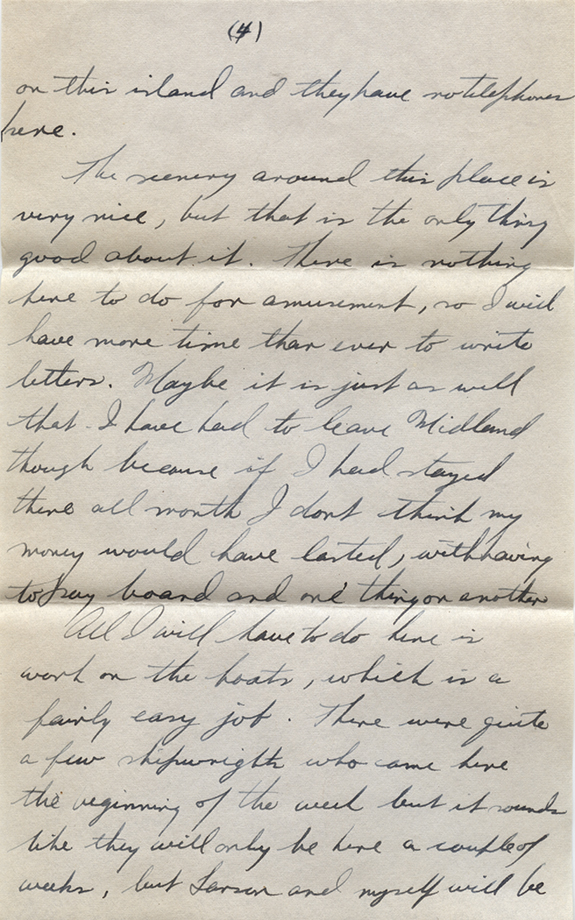 (4)
on this island and they have no telephones
here.
The scenery around this place is
very nice, but that is the only thing
good about it. There is nothing
here to do for amusement, so I will
have more time than ever to write
letters. Maybe it is just as well
that I have had to leave Midland
though because if I had stayed
there all month I dont think my
money would have lasted, with having
to pay board and one thing or another
All I will have to do here is
work on the boats, which is a
fairly easy job. There were quite
a few shipwrights who came here
the beginning of the week but it sounds
like they will only be here a couple of
weeks, but Larson and myself will be